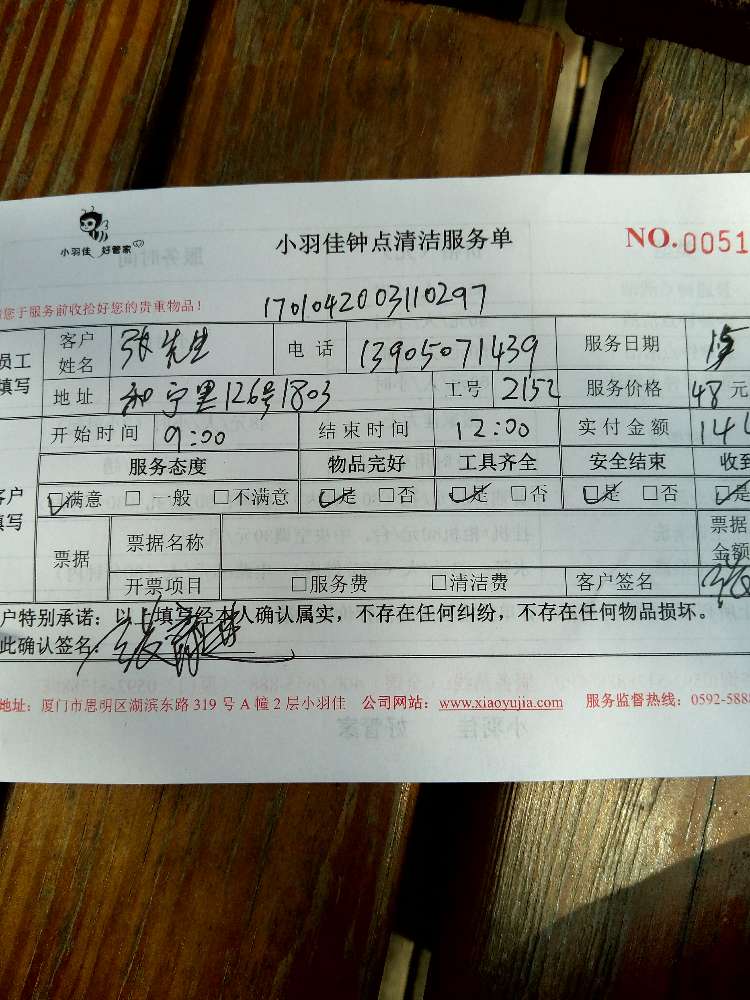 小羽佳 好管家
小羽佳钟点清洁服务单
NO.0051
您于服务前收拾好您的贵重物品！
1701042003110297
员工填写 客户姓名 张先生 电话 13905071439 服务日期
地址 和宁里126号1803 工号 2152 服务价格 48元
开始时间 9:00 结束时间 12:00 实付金额 144
客户填写 服务态度 物品完好 工具齐全 安全结束 收到
☑满意 □一般 □不满意 ☑是 □否 ☑是 □否 ☑是 □否 ☑是
票据 票据名称 票据金额
开票项目 □服务费 □清洁费 客户签名
户特别承诺：以上填写经本人确认属实，不存在任何纠纷，不存在任何物品损坏。
此确认签名：
地址：厦门市思明区湖滨东路 319 号 A 幢 2 层小羽佳 公司网站：www.xiaoyujia.com 服务监督热线：0592-5888